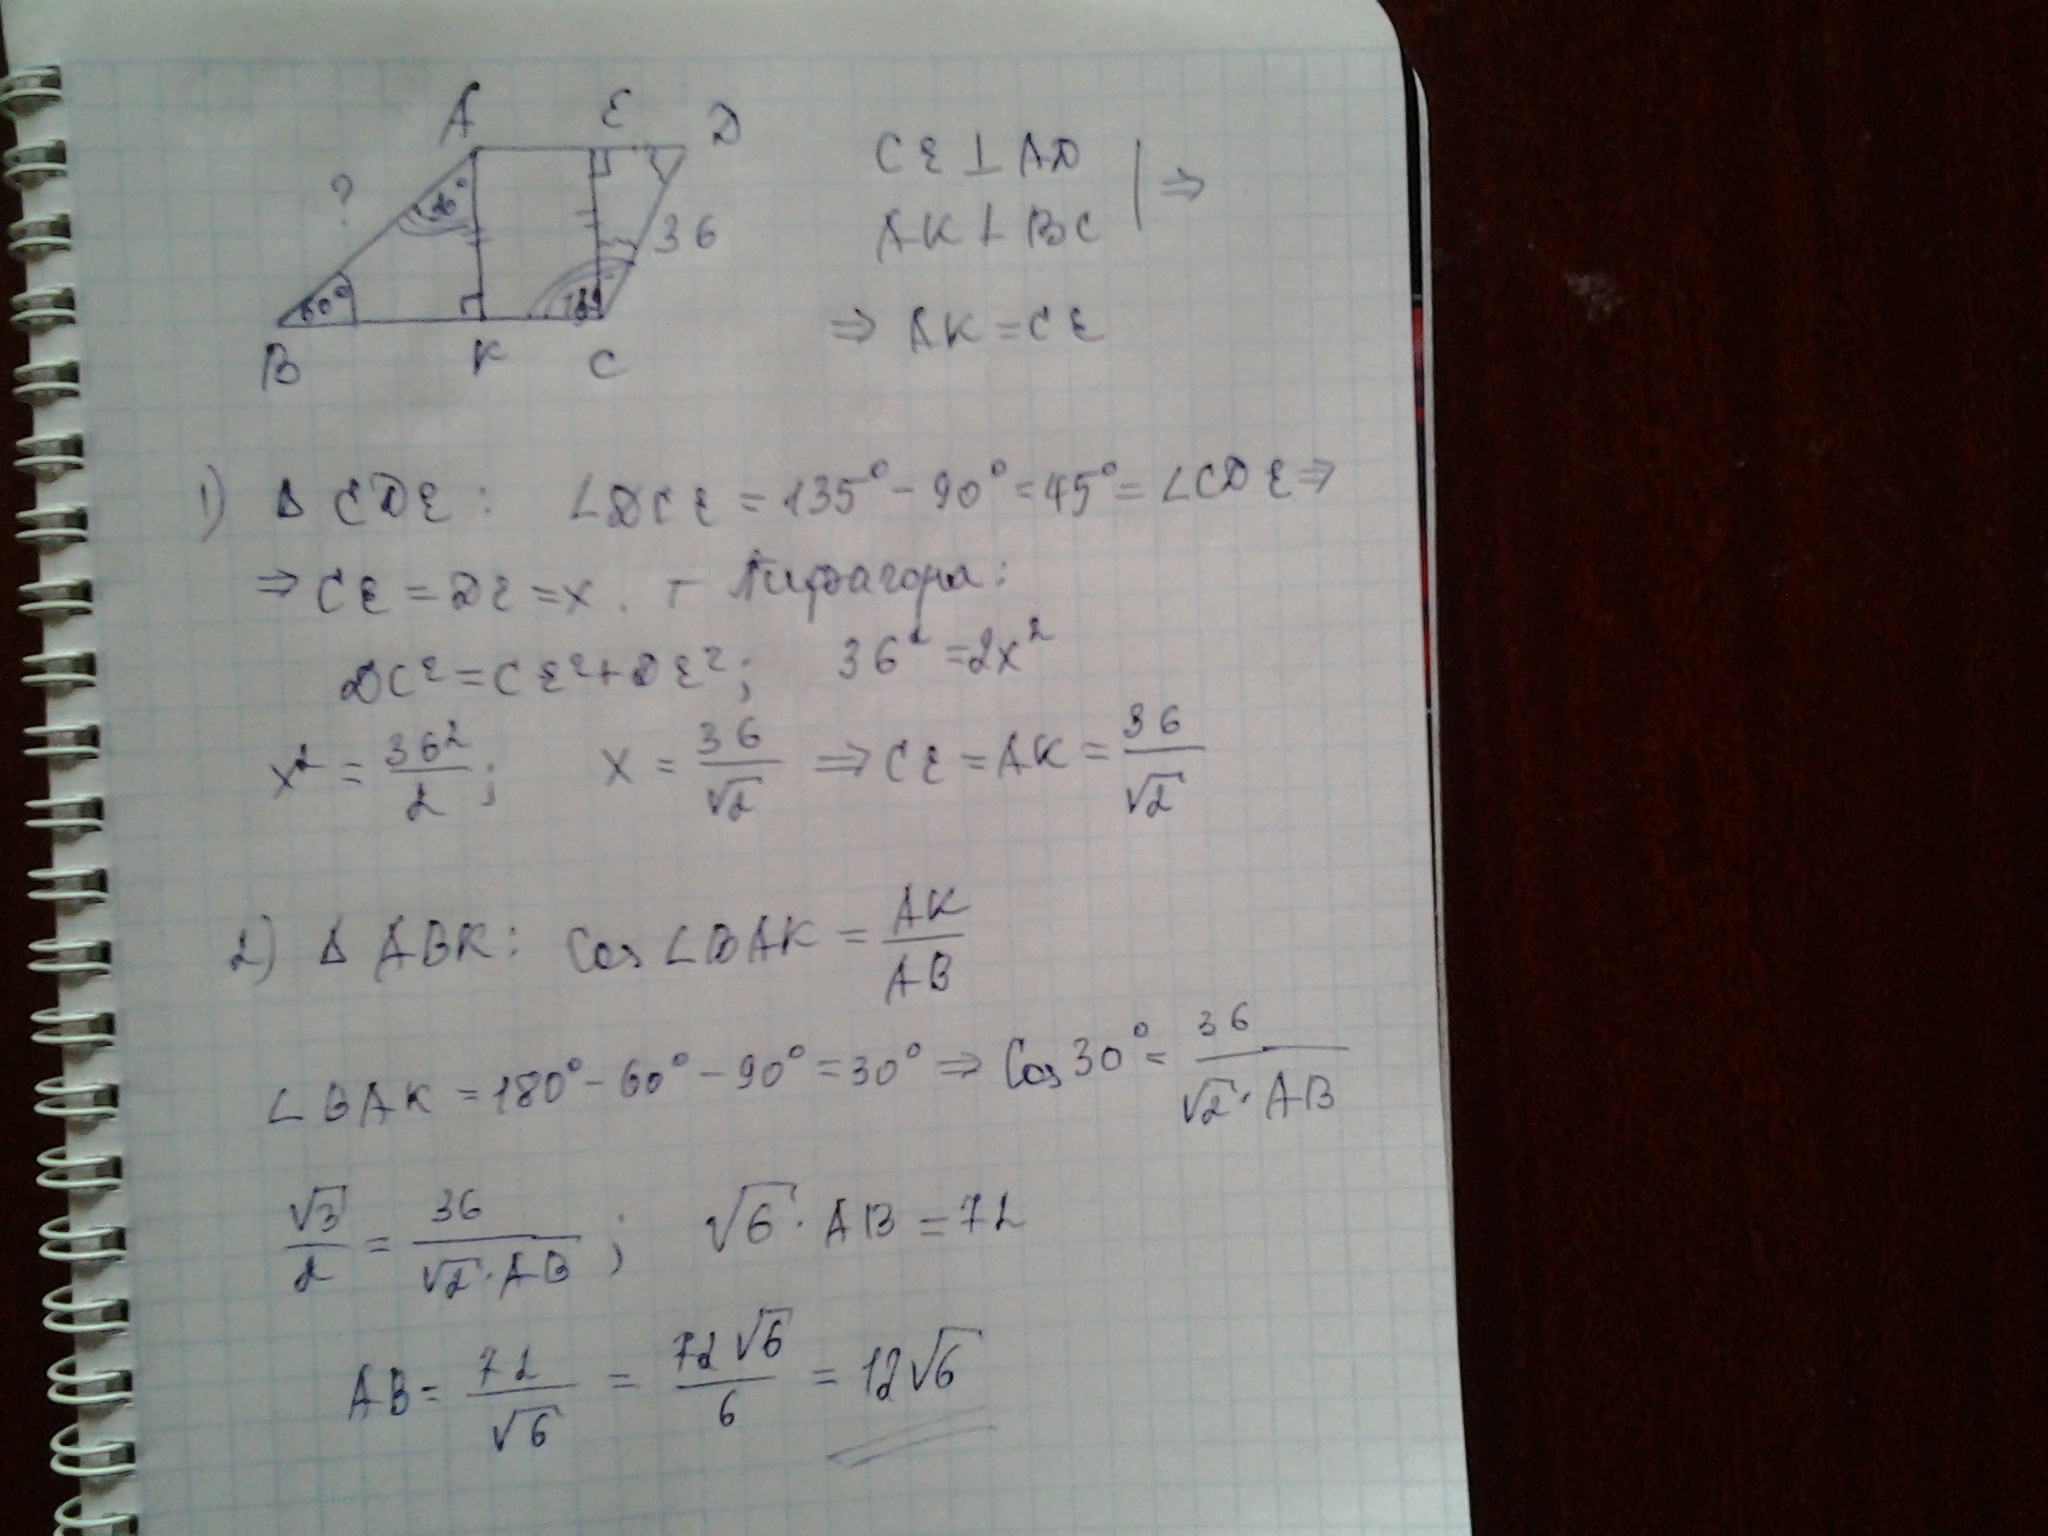 A E D
? 36
60° 135
B K C
CE ⊥ AD
AK ⊥ BC | ⇒
⇒ AK = CE
1) Δ CDE: ∠DCE = 135° - 90° = 45° = ∠CDE ⇒
⇒ CE = DE = x. т Пифагора:
DC² = CE² + DE²; 36² = 2x²
x² = 36²/2; x = 36/√2 ⇒ CE = AK = 36/√2
2) Δ ABK: Cos ∠BAK = AK/AB
∠BAK = 180° - 60° - 90° = 30° ⇒ Cos 30° = 36/(√2 · AB)
√3/2 = 36/(√2 · AB); √6 · AB = 72
AB = 72/√6 = 72√6/6 = 12√6